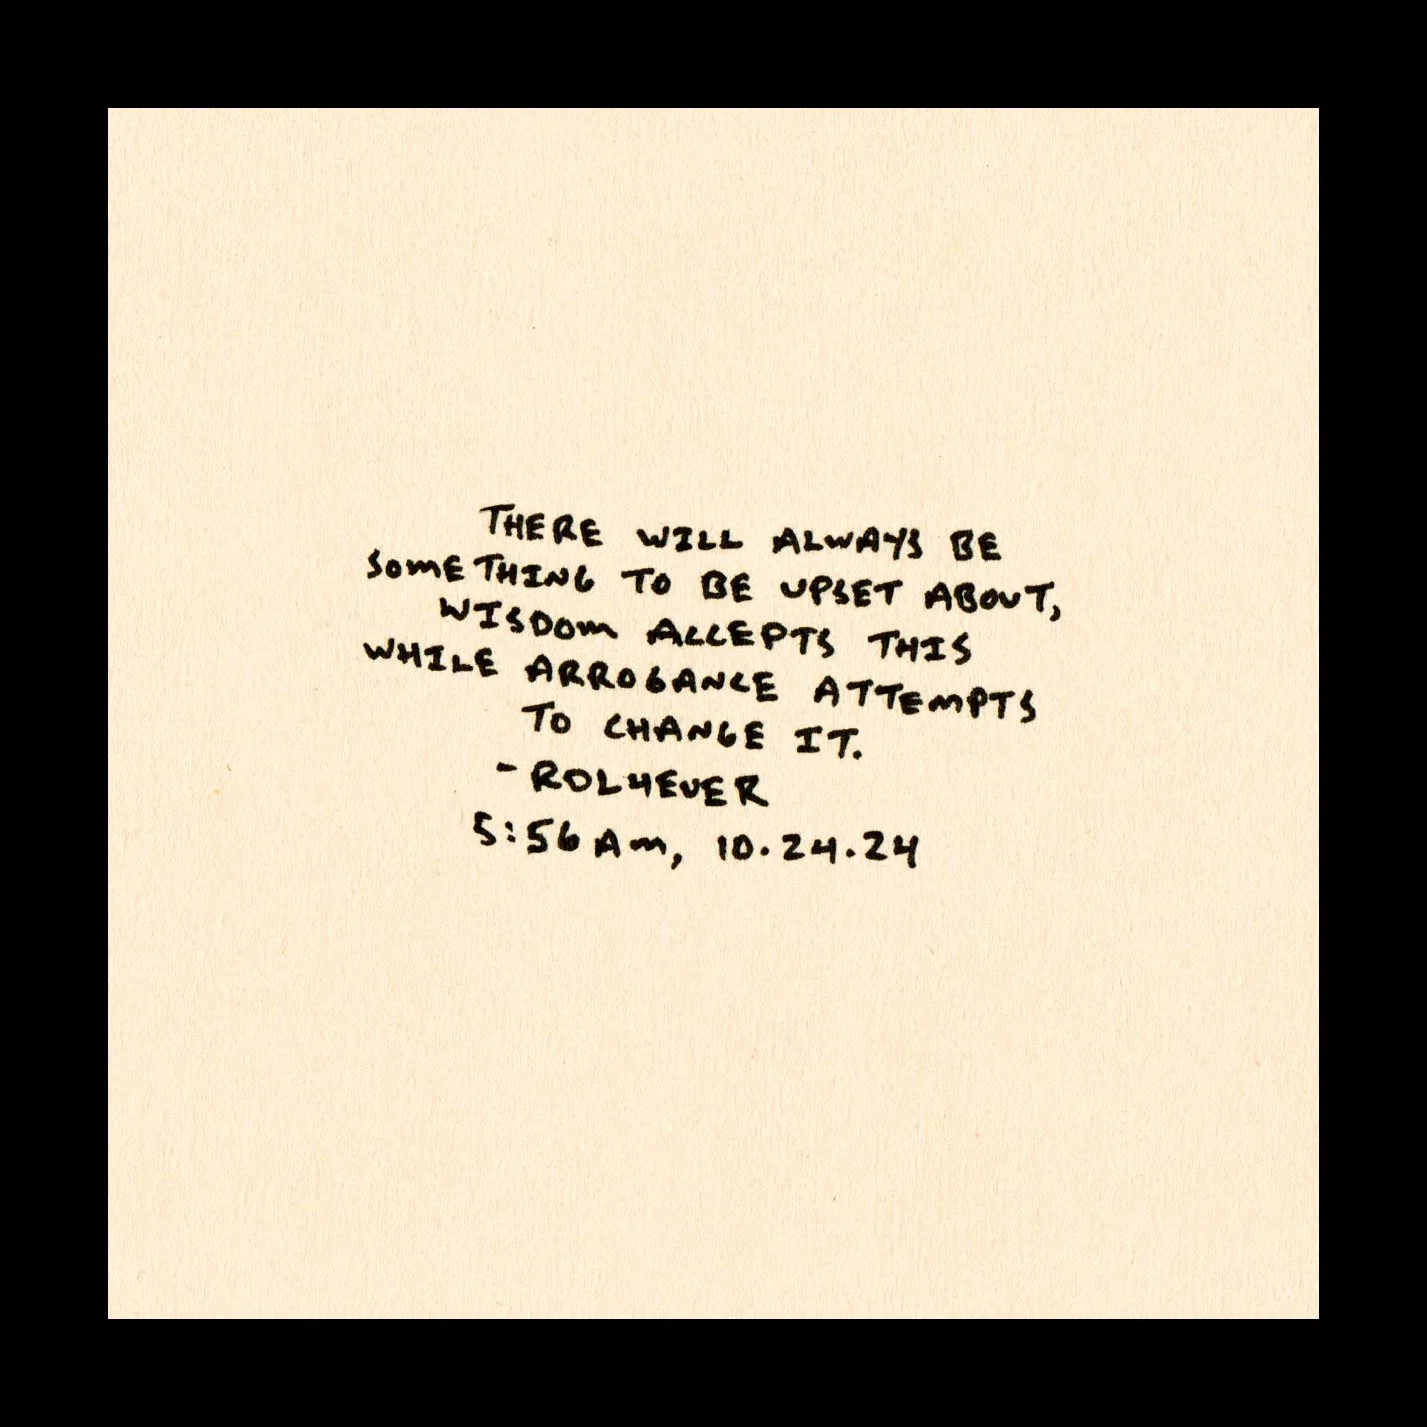 THERE WILL ALWAYS BE
SOMETHING TO BE UPSET ABOUT,
WISDOM ACCEPTS THIS
WHILE ARROGANCE ATTEMPTS
TO CHANGE IT.
- RDL4EVER
5:56 AM, 10.24.24